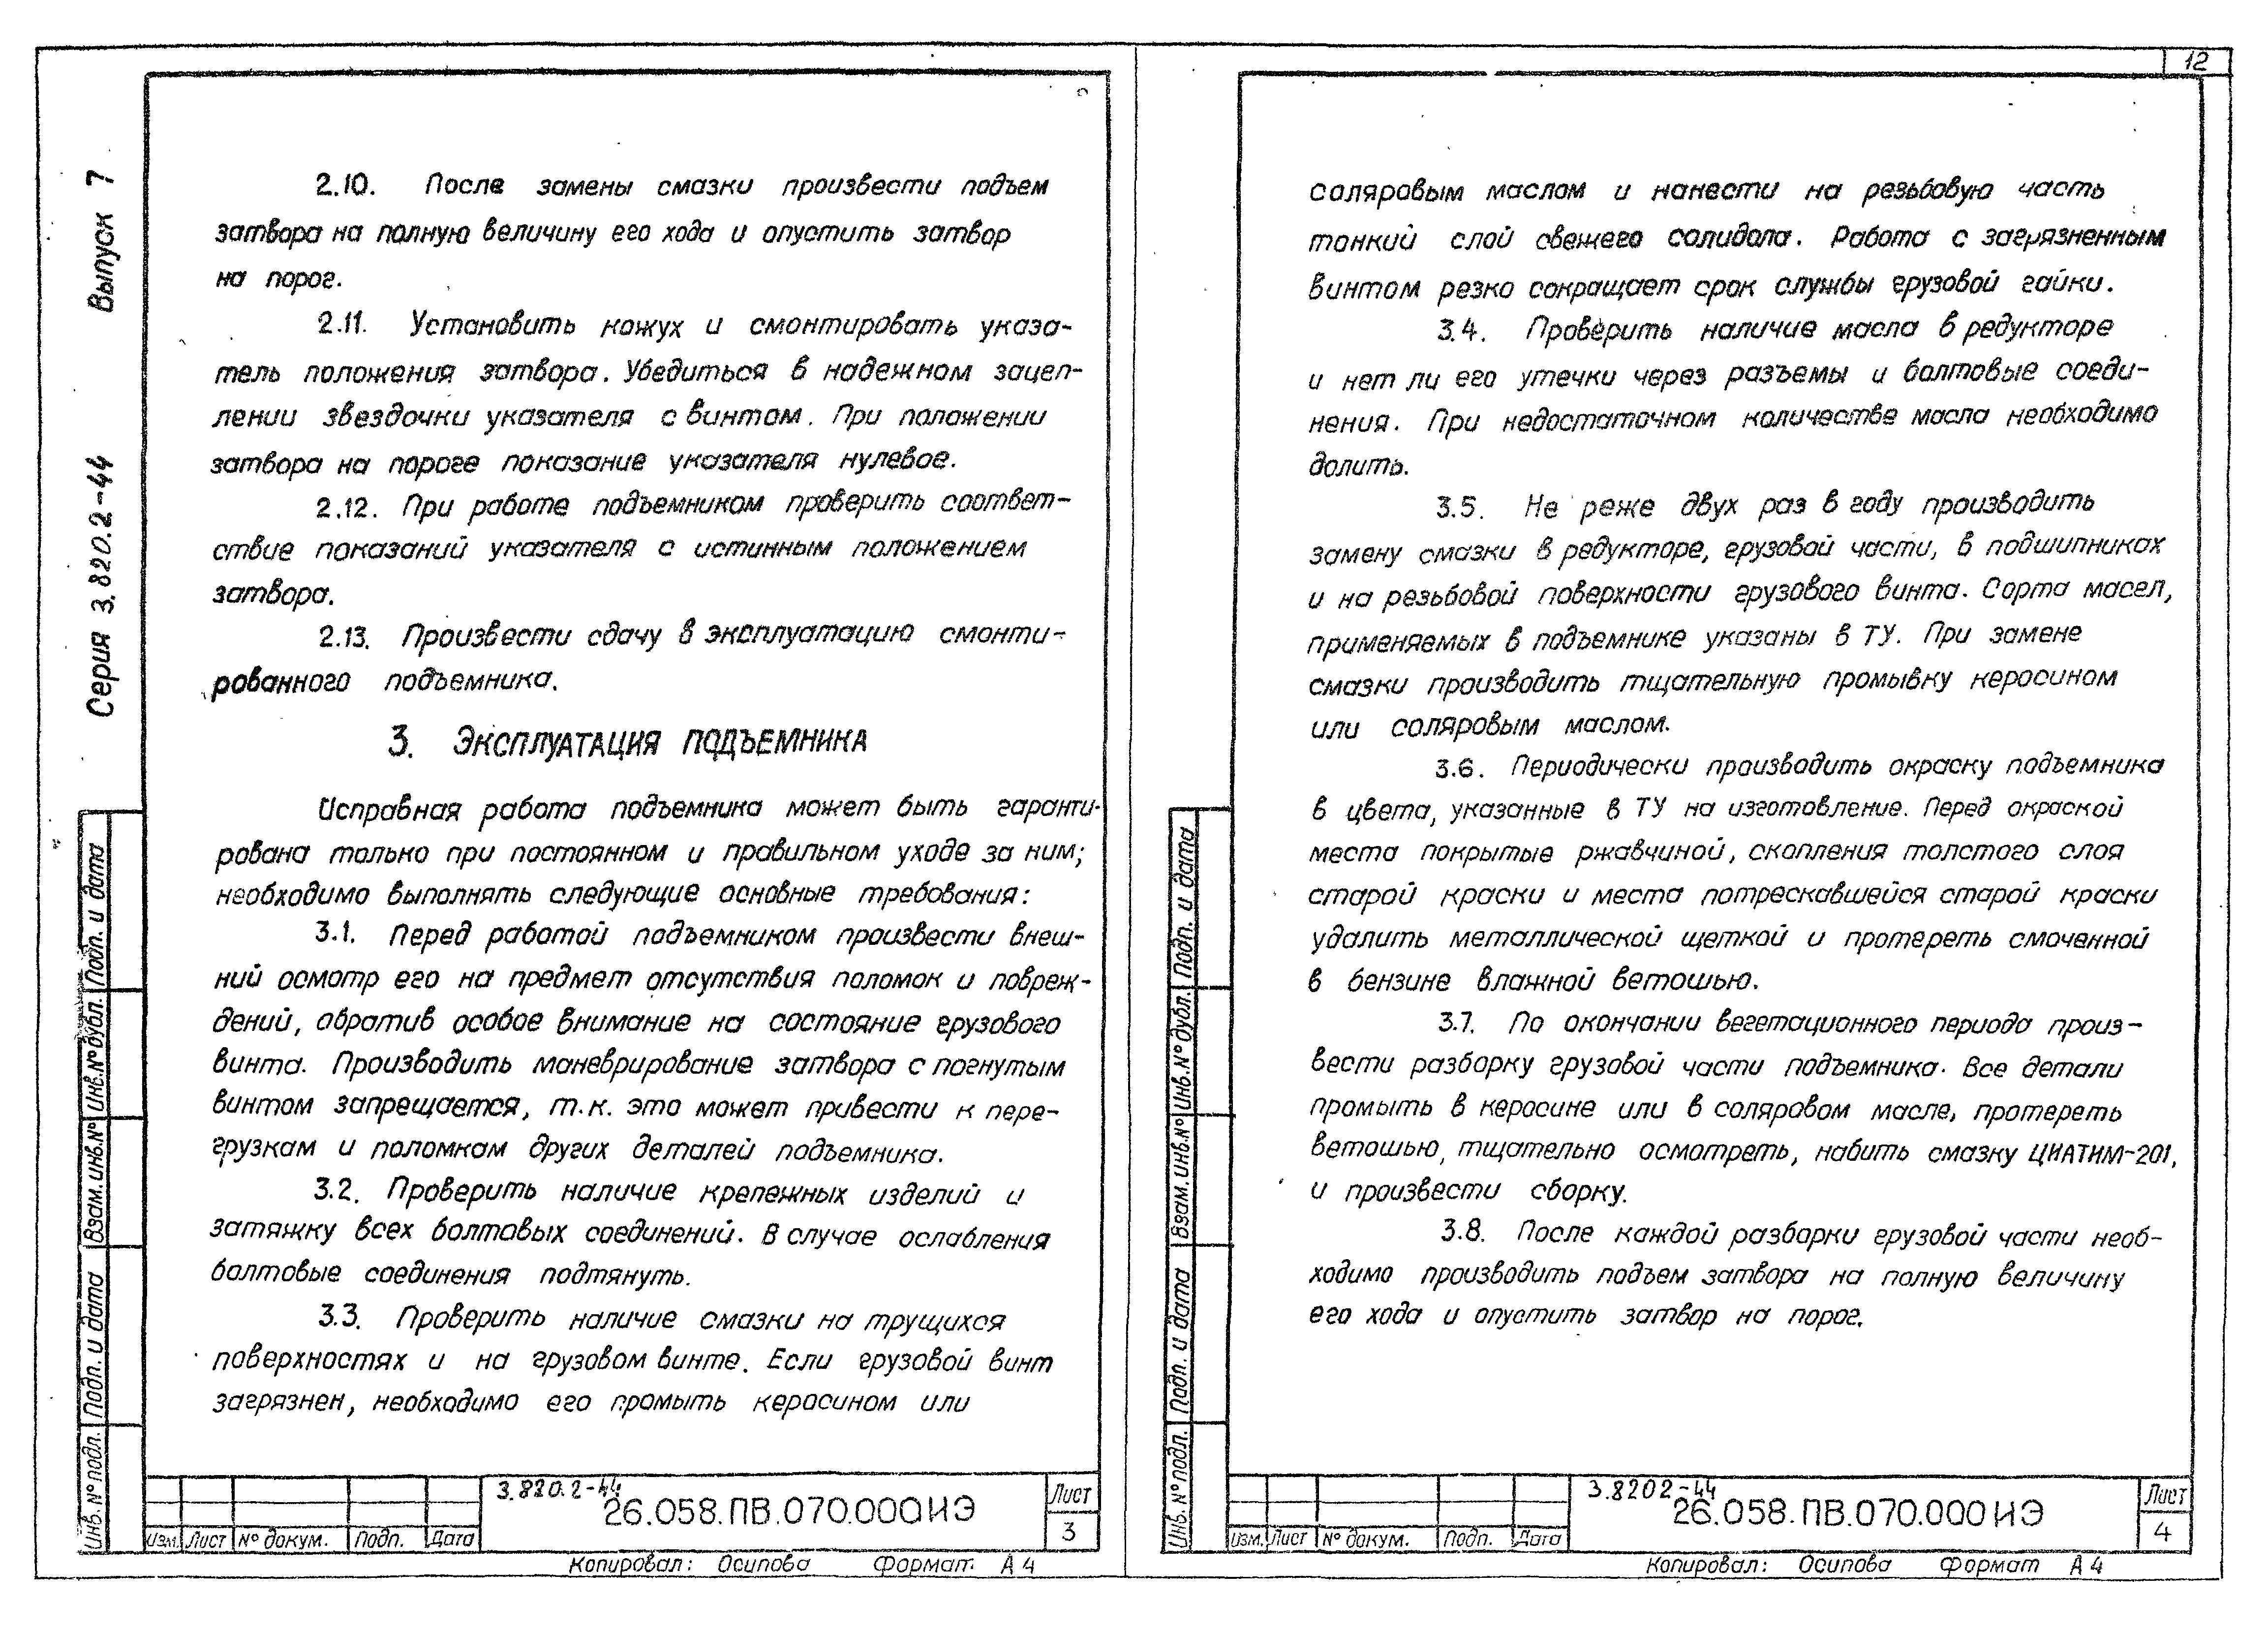 12
Серия 3.820.2-44 Выпуск 7
2.10. После замены смазки произвести подъем
затвора на полную величину его хода и опустить затвор
на порог.
2.11. Установить кожух и смонтировать указа-
тель положения затвора. Убедиться в надежном зацеп-
лении звездочки указателя с винтом. При положении
затвора на пороге показание указателя нулевое.
2.12. При работе подъемником проверить соответ-
ствие показаний указателя с истинным положением
затвора.
2.13. Произвести сдачу в эксплуатацию смонти-
рованного подъемника.
3. ЭКСПЛУАТАЦИЯ ПОДЪЕМНИКА
Исправная работа подъемника может быть гаранти-
рована только при постоянном и правильном уходе за ним;
необходимо выполнять следующие основные требования:
3.1. Перед работой подъемником произвести внеш-
ний осмотр его на предмет отсутствия поломок и повреж-
дений, обратив особое внимание на состояние грузового
винта. Производить маневрирование затвора с погнутым
винтом запрещается, т.к. это может привести к пере-
грузкам и поломкам других деталей подъемника.
3.2. Проверить наличие крепежных изделий и
затяжку всех болтовых соединений. В случае ослабления
болтовые соединения подтянуть.
3.3. Проверить наличие смазки на трущихся
поверхностях и на грузовом винте. Если грузовой винт
загрязнен, необходимо его промыть керосином или
Инв. № подл. Подп. и дата Взам. инв. № Инв. № дубл. Подп. и дата
3.820.2-44
26.058.ПВ.070.000ИЭ
Лист
3
Изм. Лист № докум. Подп. Дата
Копировал: Осипова Формат А4
соляровым маслом и нанести на резьбовую часть
тонкий слой свежего солидола. Работа с загрязненным
винтом резко сокращает срок службы грузовой гайки.
3.4. Проверить наличие масла в редукторе
и нет ли его утечки через разъемы и болтовые соеди-
нения. При недостаточном количестве масла необходимо
долить.
3.5. Не реже двух раз в году производить
замену смазки в редукторе, грузовой части, в подшипниках
и на резьбовой поверхности грузового винта. Сорта масел,
применяемых в подъемнике указаны в ТУ. При замене
смазки производить тщательную промывку керосином
или соляровым маслом.
3.6. Периодически производить окраску подъемника
в цвета, указанные в ТУ на изготовление. Перед окраской
места покрытые ржавчиной, скопления толстого слоя
старой краски и места потрескавшейся старой краски
удалить металлической щеткой и протереть смоченной
в бензине влажной ветошью.
3.7. По окончании вегетационного периода произ-
вести разборку грузовой части подъемника. Все детали
промыть в керосине или в соляровом масле, протереть
ветошью, тщательно осмотреть, набить смазку ЦИАТИМ-201,
и произвести сборку.
3.8. После каждой разборки грузовой части необ-
ходимо производить подъем затвора на полную величину
его хода и опустить затвор на порог.
Инв. № подл. Подп. и дата Взам. инв. № Инв. № дубл. Подп. и дата
3.8202-44
26.058.ПВ.070.000ИЭ
Лист
4
Изм. Лист № докум. Подп. Дата
Копировал: Осипова Формат А4